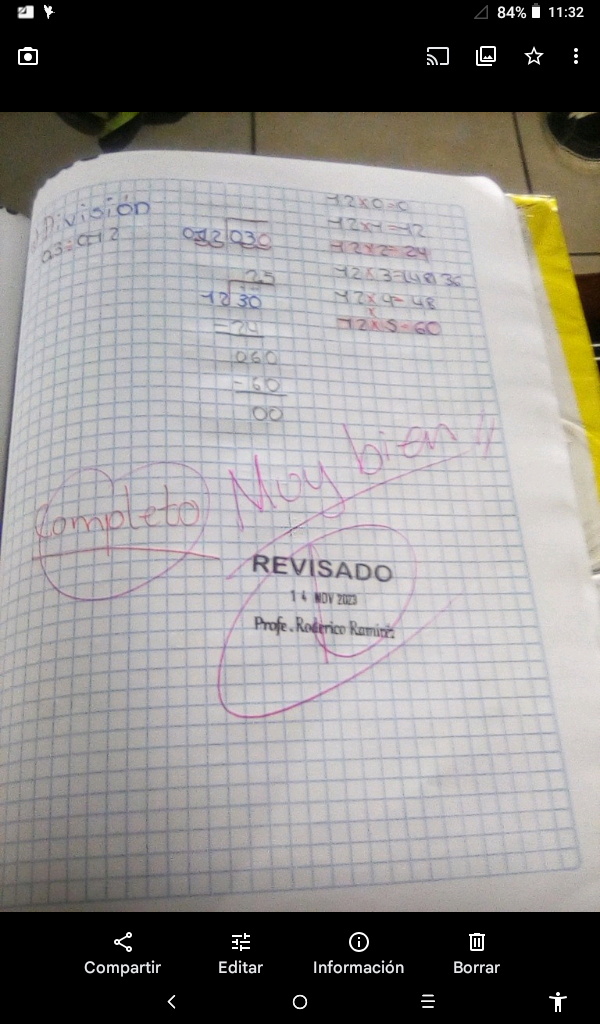 84% 11:32
División
0.3÷0.12
0.12 0.30
25
12 30
-24
060
-60
00
12x0=0
12x1=12
12x2=24
12x3=(48) 36
12x4=48
12x5=60
Completo
Moy bien
REVISADO
14 NOV 2023
Profe. Roderico Ramirez
Compartir
Editar
Información
Borrar